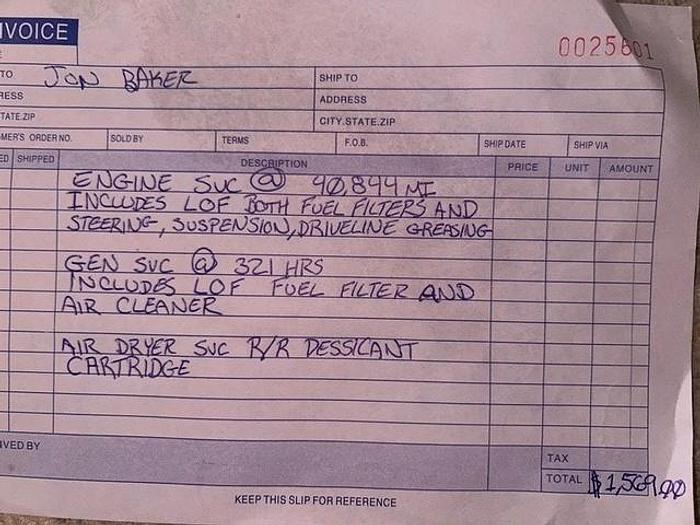 NVOICE
0025601
TO JON BAKER SHIP TO
RESS ADDRESS
TATE.ZIP CITY.STATE.ZIP
MER'S ORDER NO. SOLD BY TERMS F.O.B. SHIP DATE SHIP VIA
ED SHIPPED DESCRIPTION PRICE UNIT AMOUNT
ENGINE SVC @ 40,844 MI
INCLUDES LOF BOTH FUEL FILTERS AND
STEERING, SUSPENSION, DRIVELINE GREASING
GEN SVC @ 321 HRS
INCLUDES LOF FUEL FILTER AND
AIR CLEANER
AIR DRYER SVC R/R DESSICANT
CARTRIDGE
IVED BY
TAX
TOTAL $1,569.00
KEEP THIS SLIP FOR REFERENCE